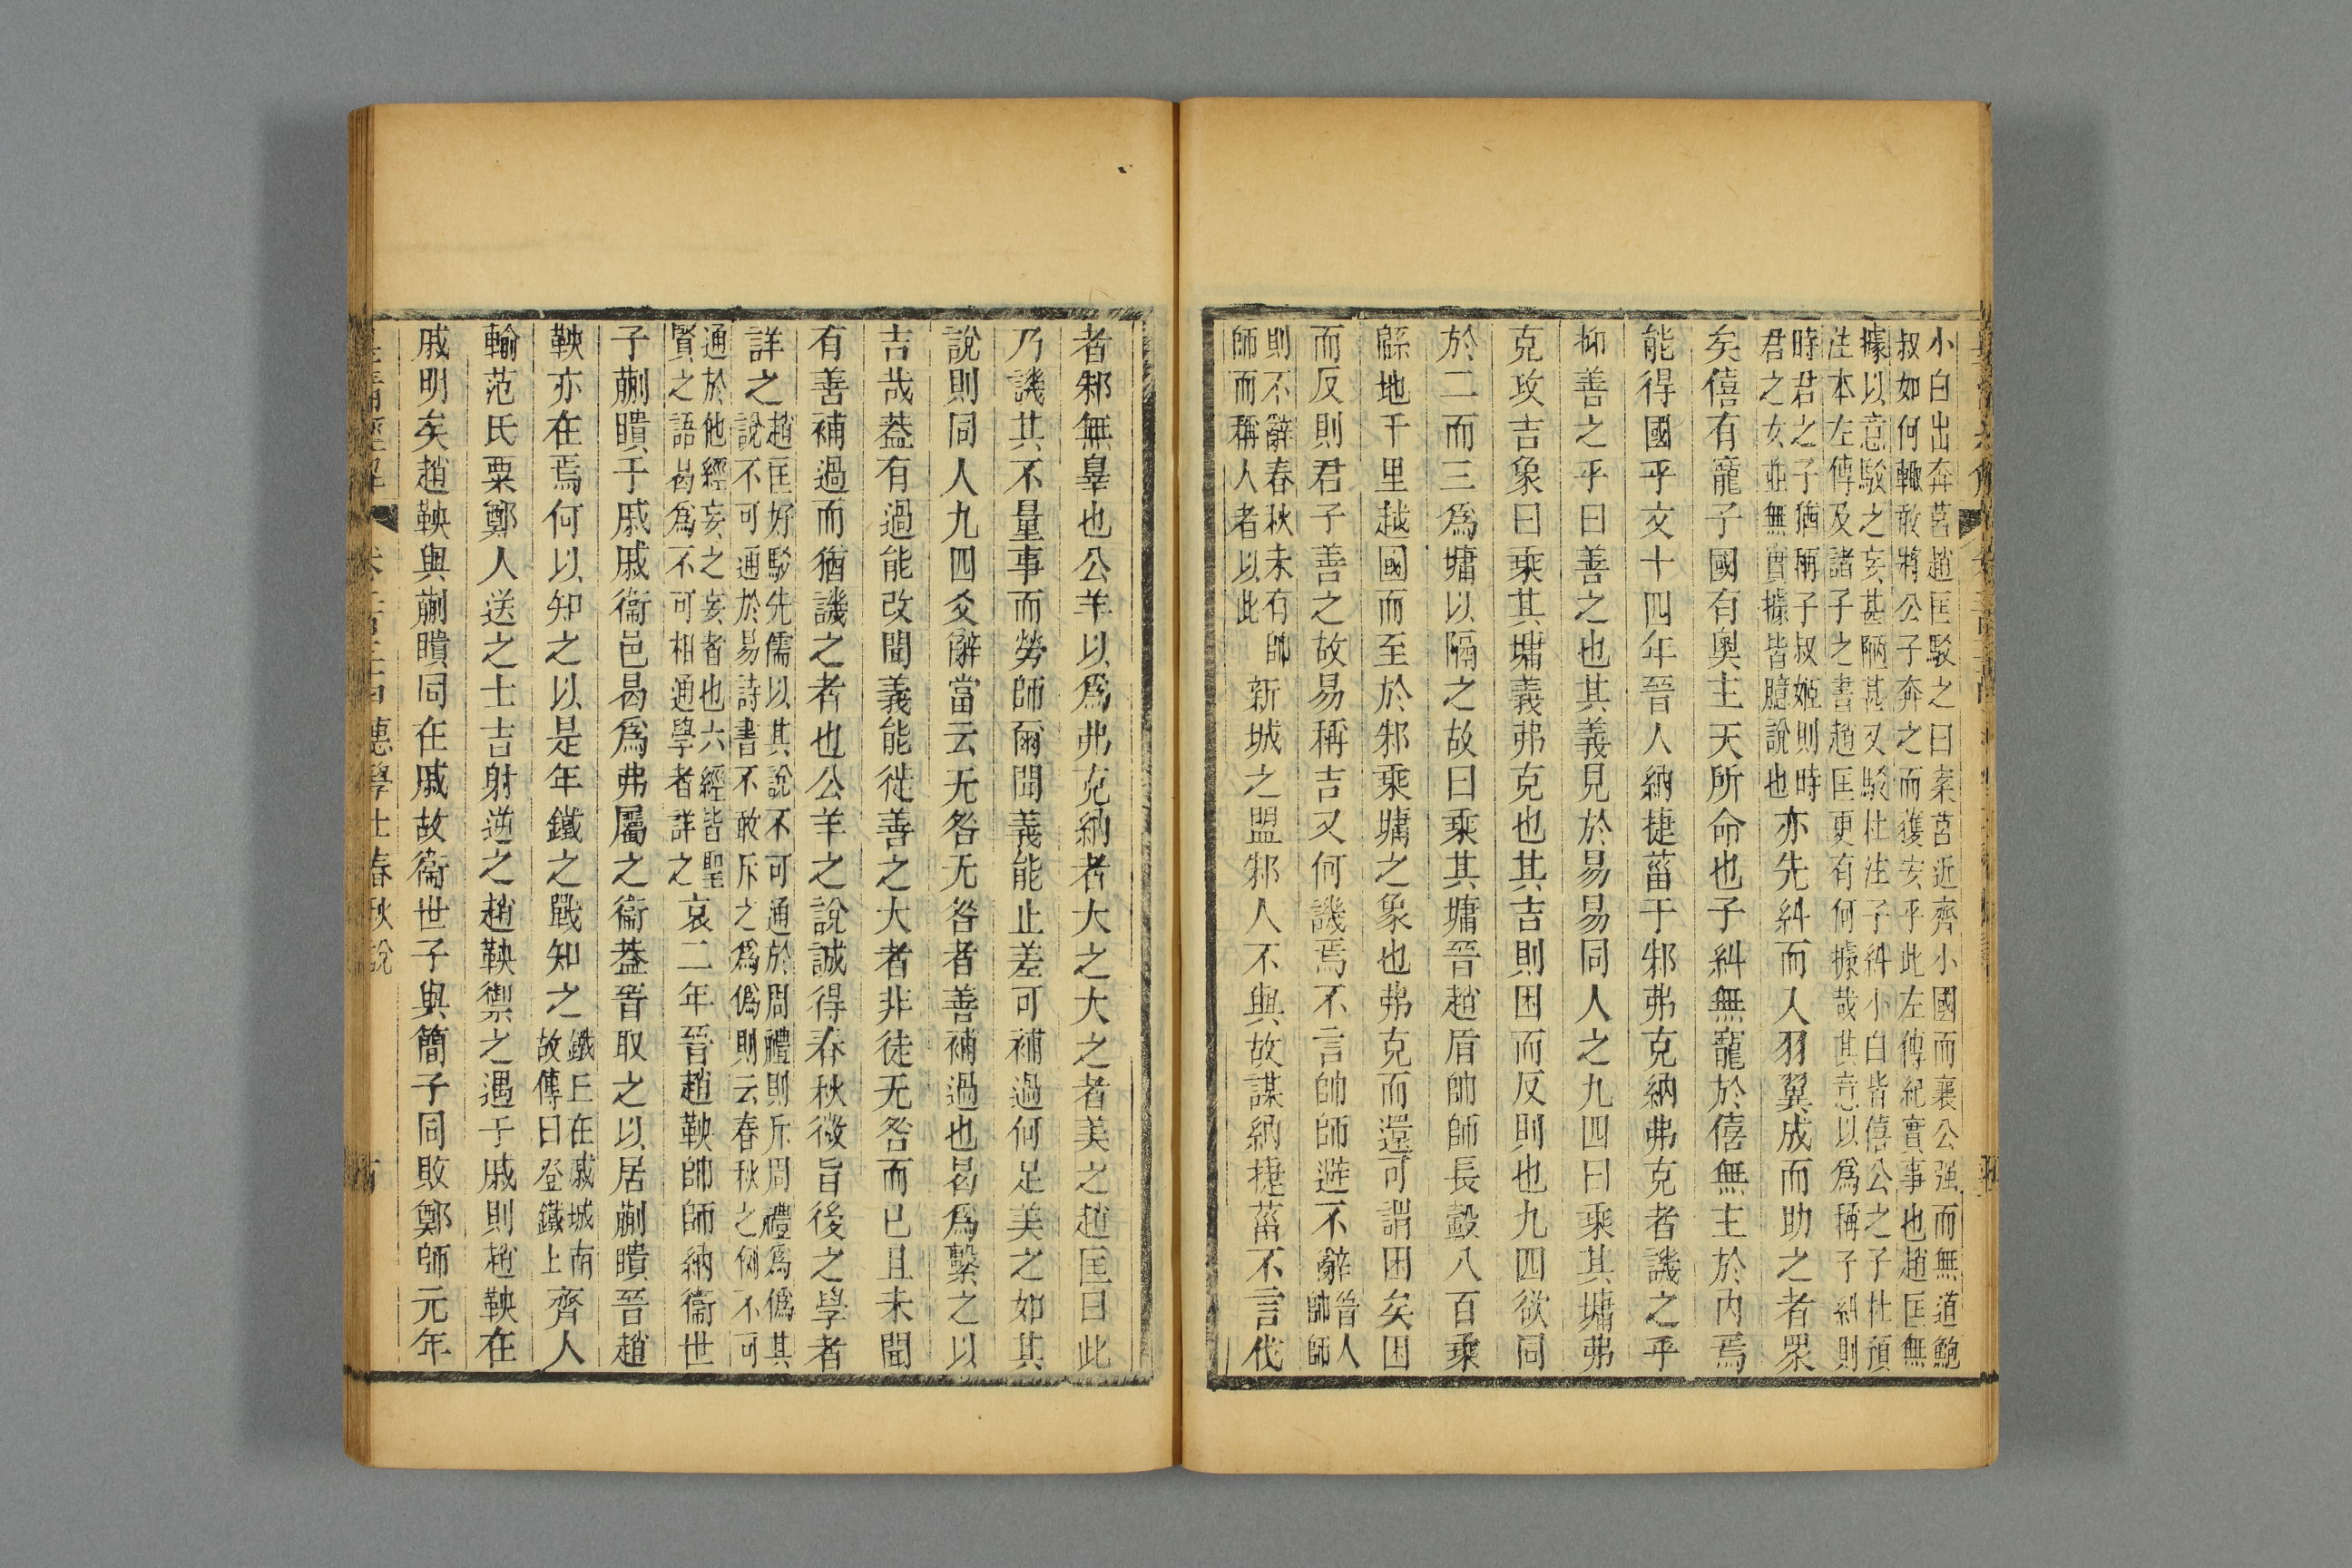 小白出奔莒趙匡駁之曰案莒近齊小國而襄公强而無道鮑
叔如何輙敢將公子奔之而獲安乎此左傳紀實事也趙匡無
據以意駁之妄甚陋甚又駁杜注子糾小白皆僖公之子杜預
注本左傳及諸子之書趙匡更有何據哉其意以爲稱子糾則
時君之子猶稱子叔姬則時
君之女並無實據皆臆說也亦先糾而人羽翼成而助之者眾
矣僖有寵子國有奧主天所命也子糾無寵於僖無主於内焉
能得國乎文十四年晉人納捷菑于邾弗克納弗克者譏之乎
抑善之乎曰善之也其義見於易易同人之九四曰乘其墉弗
克攻吉象曰乘其墉義弗克也其吉則困而反則也九四欲同
於二而三爲墉以隔之故曰乘其墉晉趙盾帥師長轂八百乘
緜地千里越國而至於邾乘墉之象也弗克而還可謂困矣困
而反則君子善之故易稱吉又何譏焉不言帥師避不辭晉人
帥師
則不辭春秋未有帥
師而稱人者以此新城之盟邾人不與故謀納捷菑不言伐
者邾無辠也公羊以爲弗克納者大之大之者美之趙匡曰此
乃譏其不量事而勞師爾聞義能止差可補過何足美之如其
說則同人九四爻辭當云无咎无咎者善補過也曷爲繫之以
吉哉葢有過能改聞義能徙善之大者非徒无咎而已且未聞
有善補過而猶譏之者也公羊之說誠得春秋微旨後之學者
詳之趙匡好駁先儒以其說不可通於周禮則斥周禮爲僞其
說不可通於易詩書不敢斥之爲僞則云春秋之例不可
通於他經妄之妄者也六經皆聖
賢之語曷爲不可相通學者詳之哀二年晉趙鞅帥師納衞世
子蒯聵于戚戚衞邑曷爲弗屬之衞葢晉取之以居蒯聵晉趙
鞅亦在焉何以知之以是年鐵之戰知之鐵丘在戚城南
故傳曰登鐵上齊人
輸范氏粟鄭人送之士吉射逆之趙鞅禦之遇于戚則趙鞅在
戚明矣趙鞅與蒯聵同在戚故衞世子與簡子同敗鄭師元年